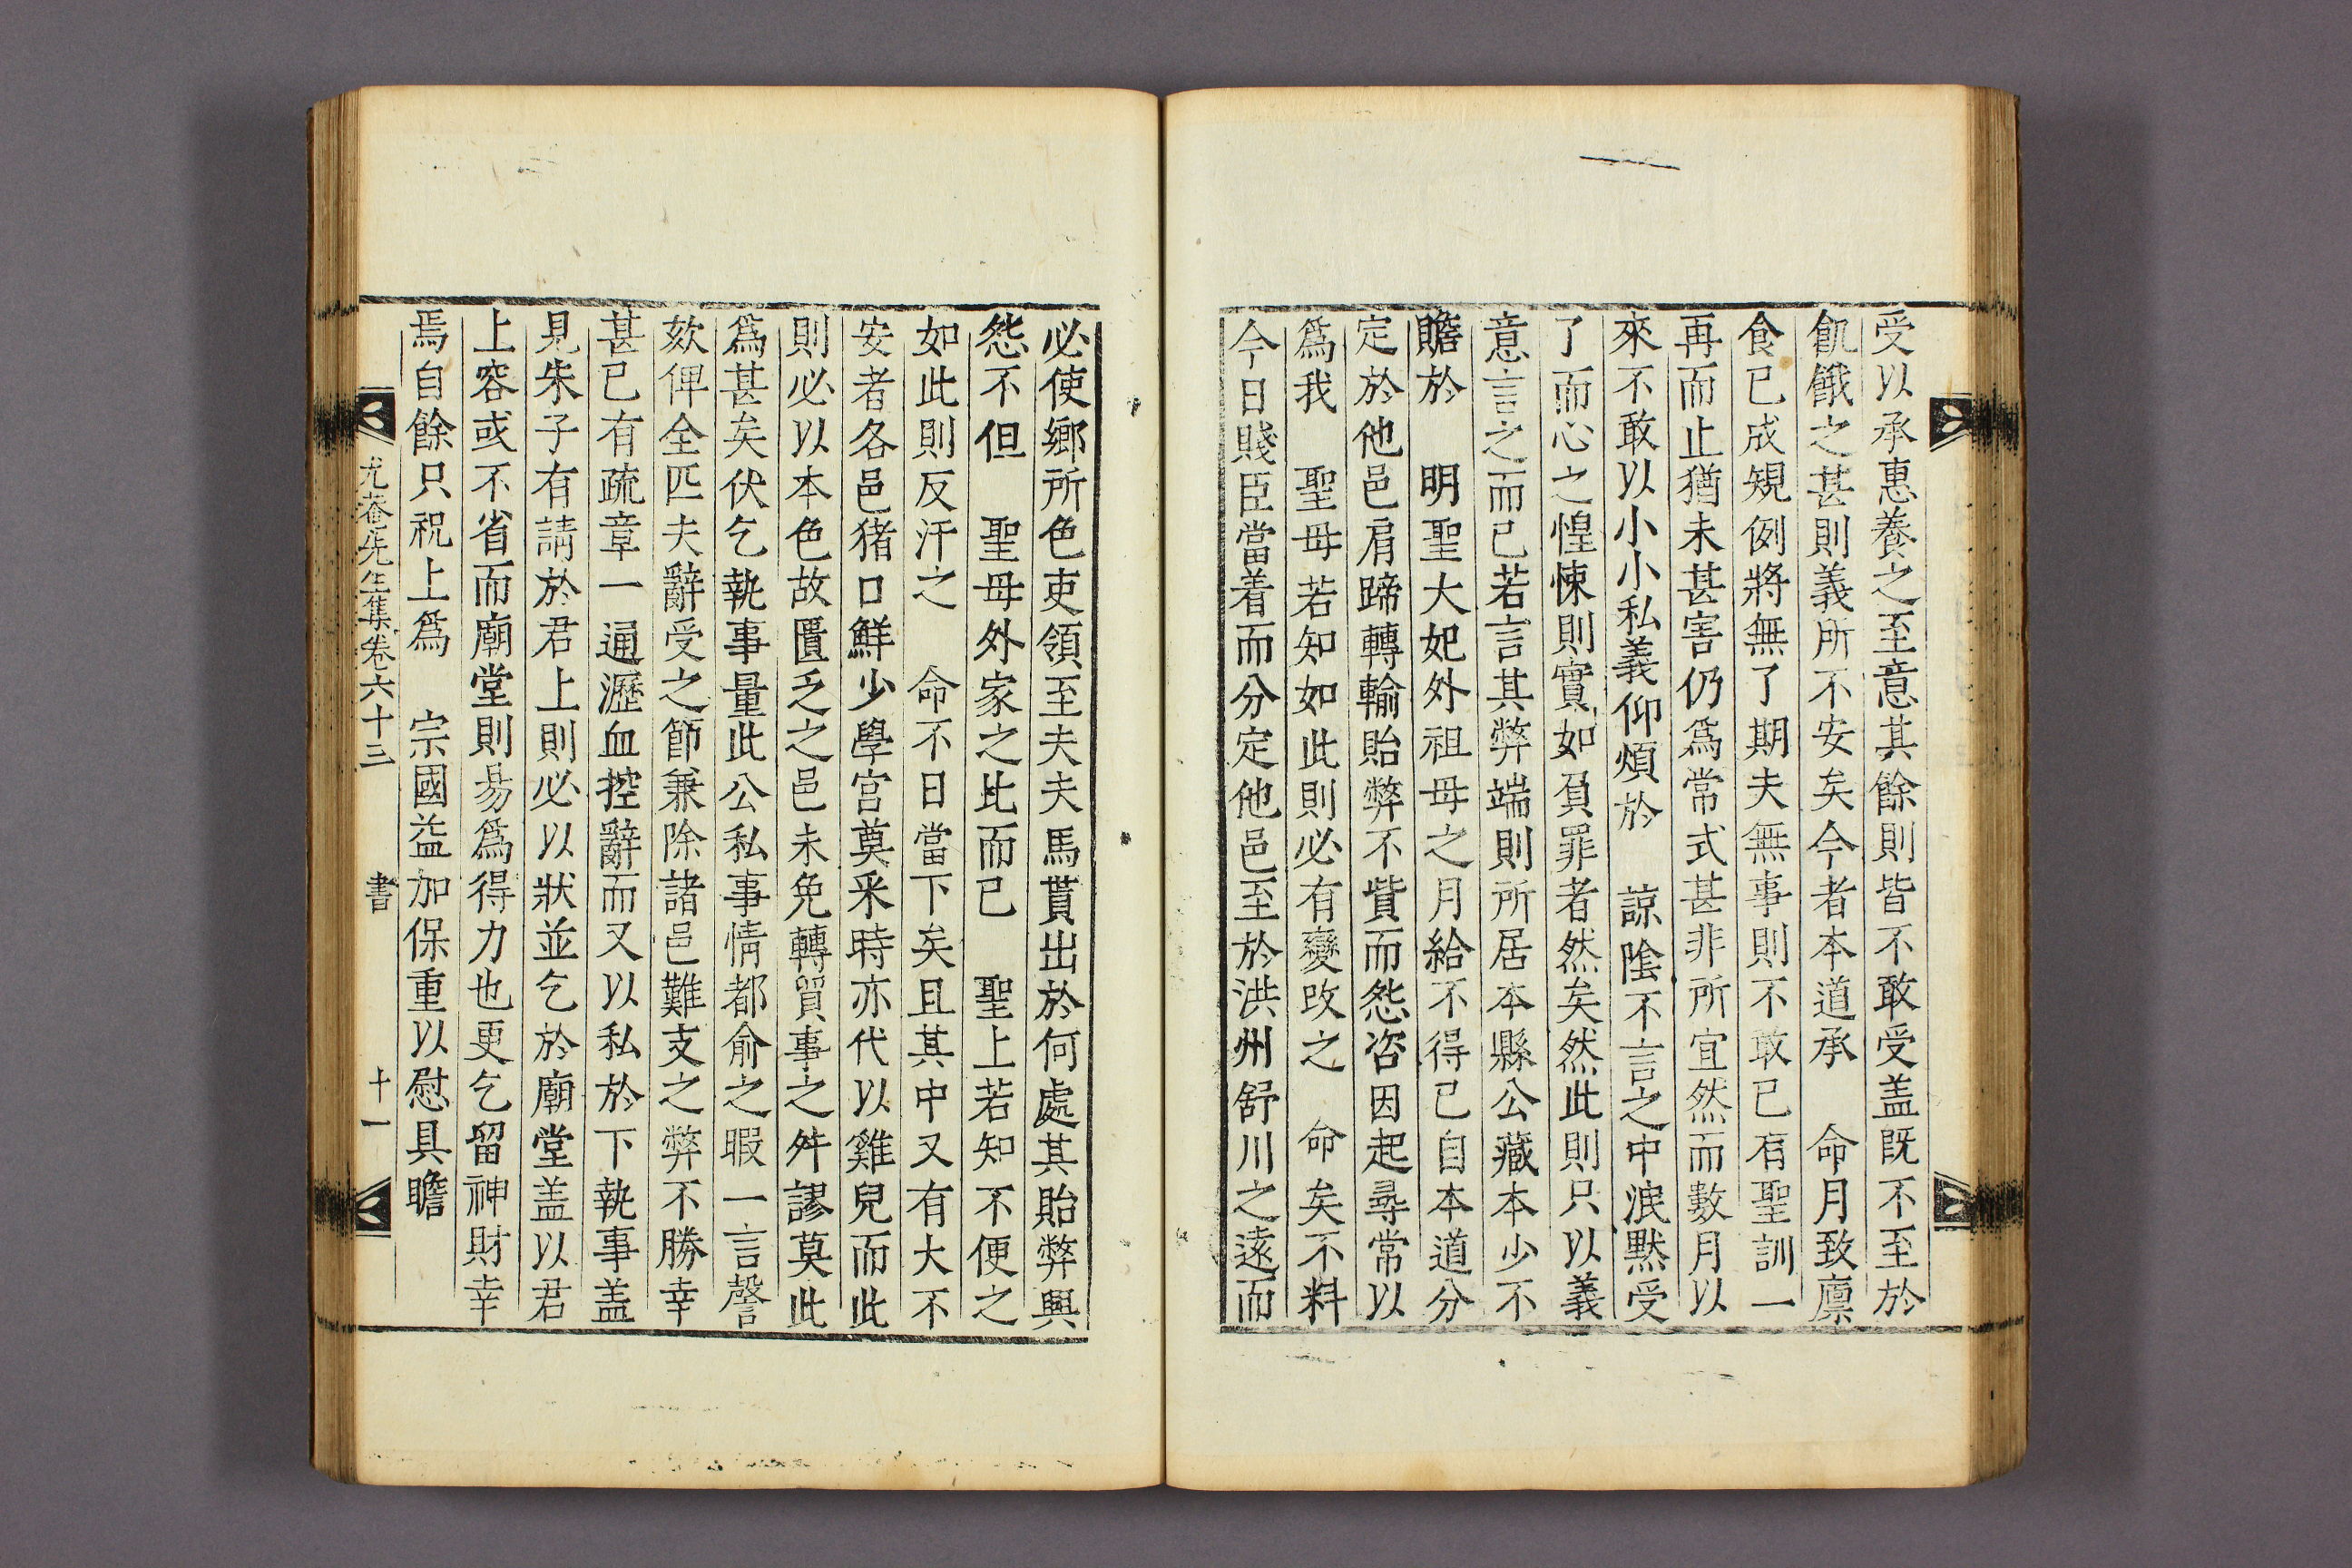 受以承惠養之至意其餘則皆不敢受盖既不至於
飢餓之甚則義所不安矣今者本道承　命月致廩
食已成規例將無了期夫無事則不敢已有聖訓一
再而止猶未甚害仍爲常式甚非所宜然而數月以
來不敢以小小私義仰煩於　諒陰不言之中泯默受
了而心之惶悚則實如負罪者然矣然此則只以義
意言之而已若言其弊端則所居本縣公藏本少不
贍於　明聖大妃外祖母之月給不得已自本道分
定於他邑肩蹄轉輸貽弊不貲而怨咨因起尋常以
爲我　聖母若知如此則必有變改之　命矣不料
今日賤臣當着而分定他邑至於洪州舒川之遠而
必使鄉所色吏領至夫夫馬貰出於何處其貽弊興
怨不但　聖母外家之比而已　聖上若知不便之
如此則反汗之　命不日當下矣且其中又有大不
安者各邑猪口鮮少學宮奠釆時亦代以雞兒而此
則必以本色故匱乏之邑未免轉貿事之舛謬莫此
爲甚矣伏乞執事量此公私事情都俞之暇一言謦
欬俾全匹夫辭受之節兼除諸邑難支之弊不勝幸
甚已有疏章一通瀝血控辭而又以私於下執事盖
見朱子有請於君上則必以狀並乞於廟堂盖以君
上容或不省而廟堂則易爲得力也更乞留神財幸
焉自餘只祝上爲　宗國益加保重以慰具瞻
尤菴先生集卷六十三　書　十一